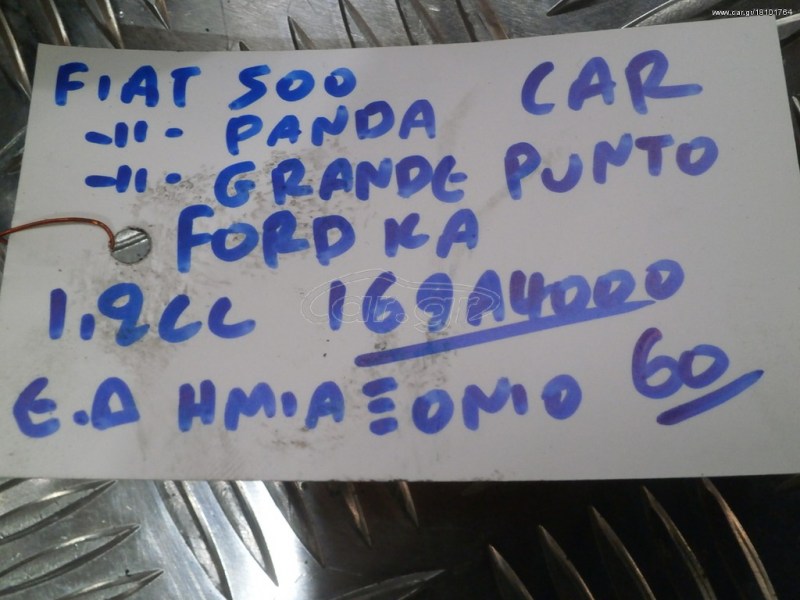 www.car.gr/18101764
FIAT 500 CAR
-11- PANDA
-11- GRANDE PUNTO
FORD KA
1,2CC 169A4000
Ε.Δ ΗΜΙΑΞΟΝΙΟ 60